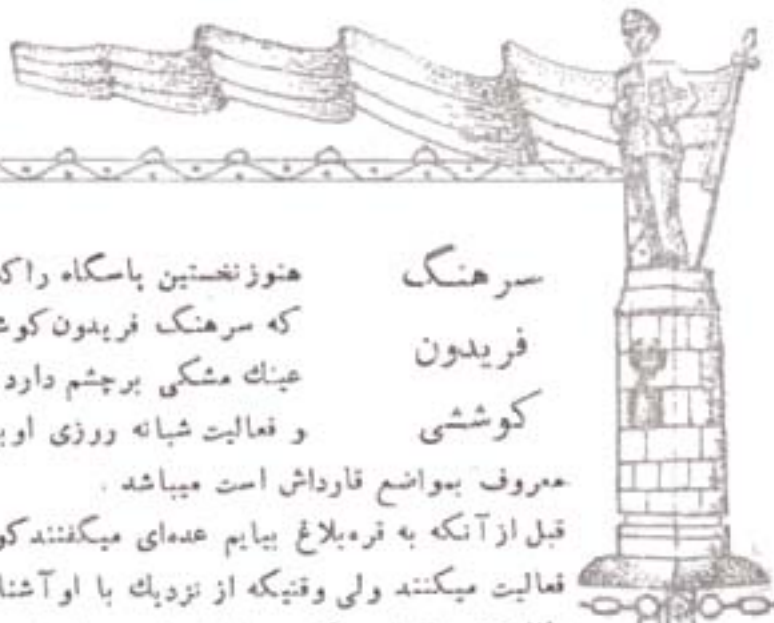 سرهنگ
فریدون
کوششی
هنوز نخستین پاسگاه را
که سرهنگ فریدون
عینك مشکی برچشم دارد
و فعالیت شبانه روزی
معروف بمواضع قارداش است میباشد .
قبل از آنکه به قره‌بلاغ بیایم عده‌ای میگفتند
فعالیت میکنند ولی وقتیکه از نزدیك با او